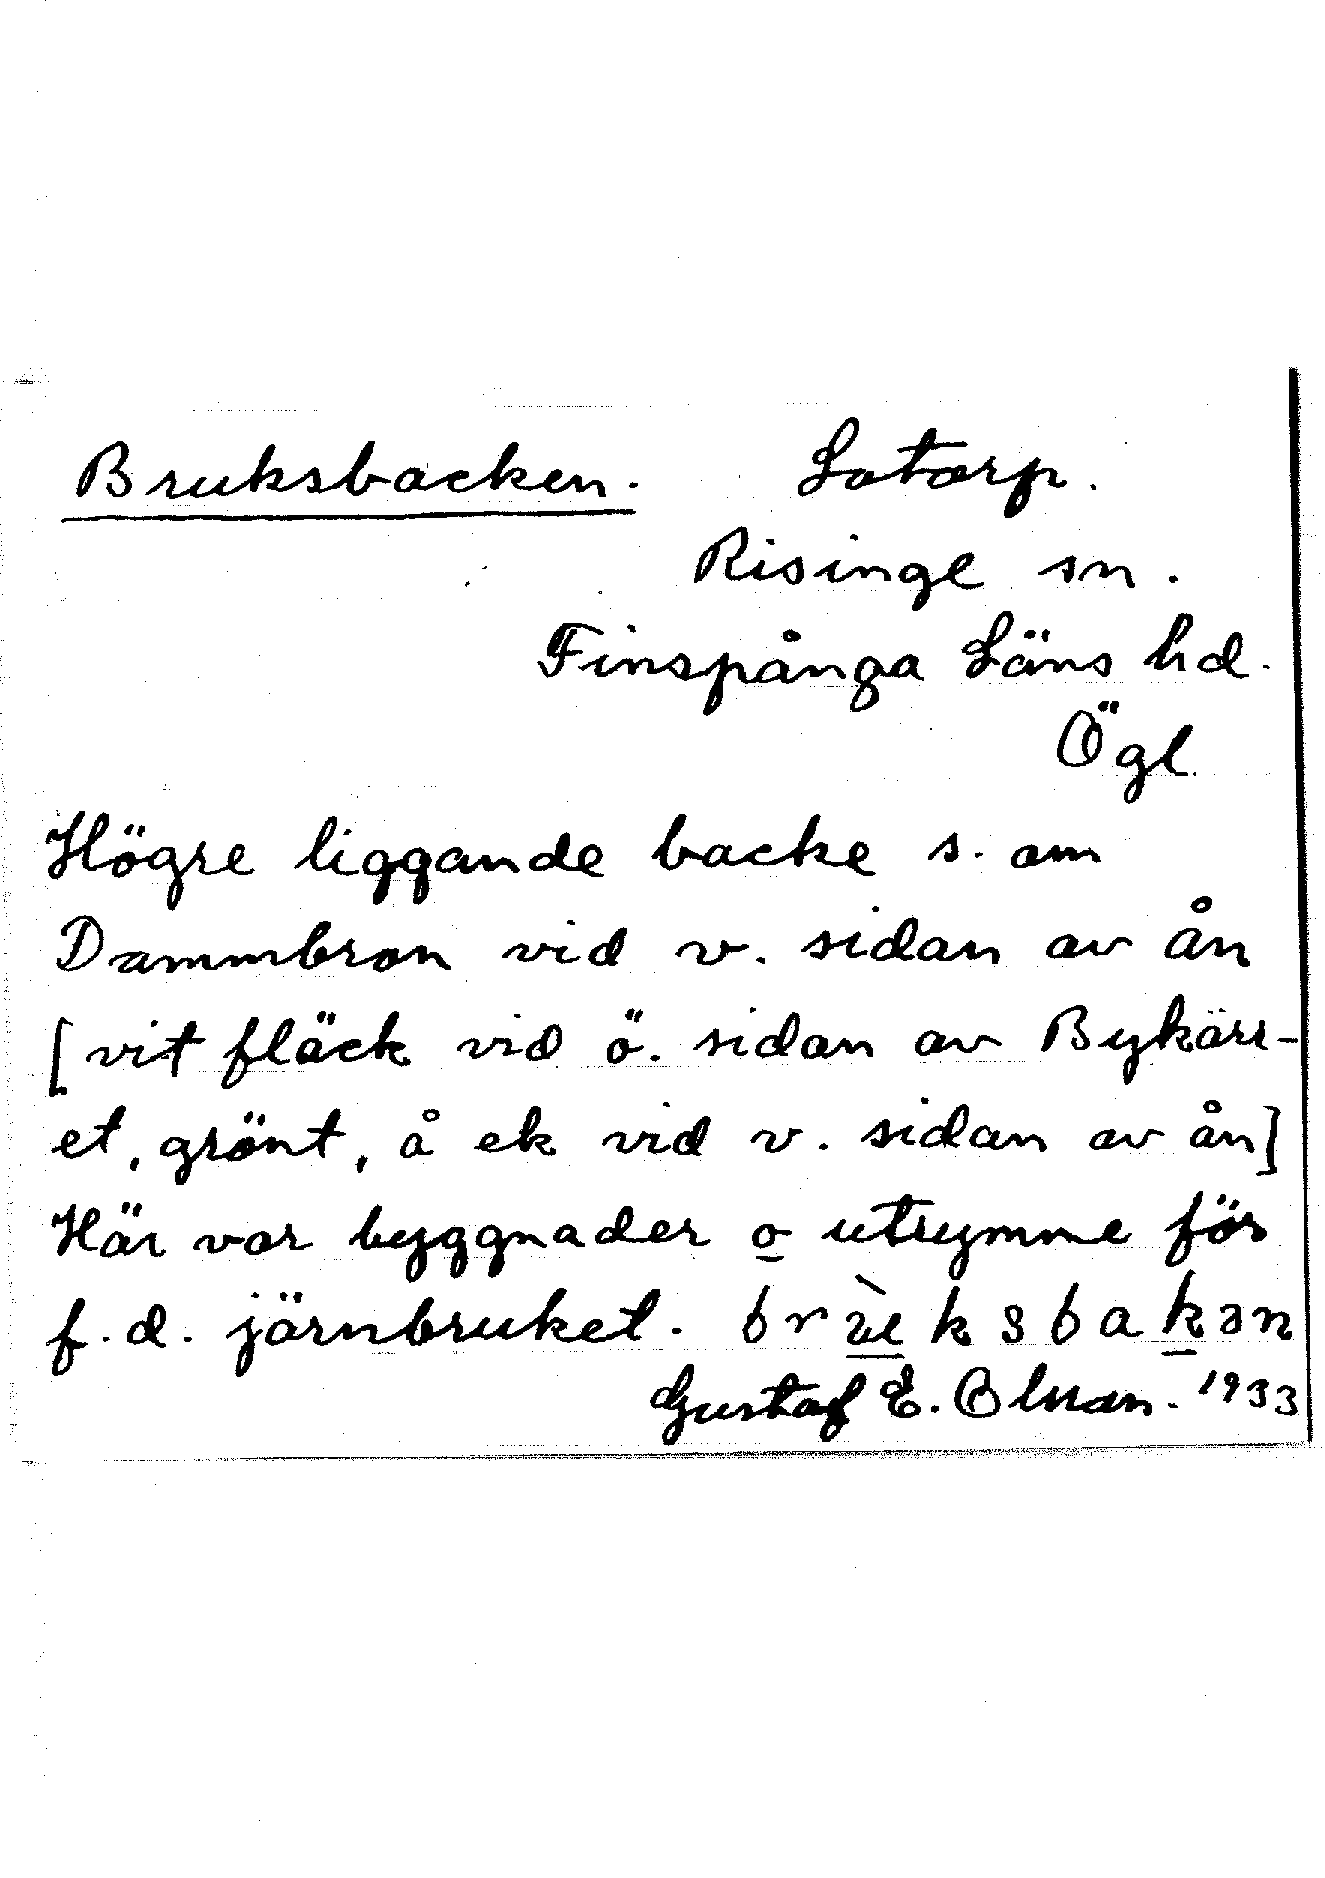 Bruksbacken. Lotorp.
Risinge sn.
Finspånga Läns hd.
Ögl.
Högre liggande backe s. om
Dammbron vid v. sidan av ån
[vit fläck vid ö. sidan av Bykärr-
et, grönt, å ek vid v. sidan av ån]
Här var byggnader o utrymme för
f.d. järnbruket.
Gustaf E. 1933